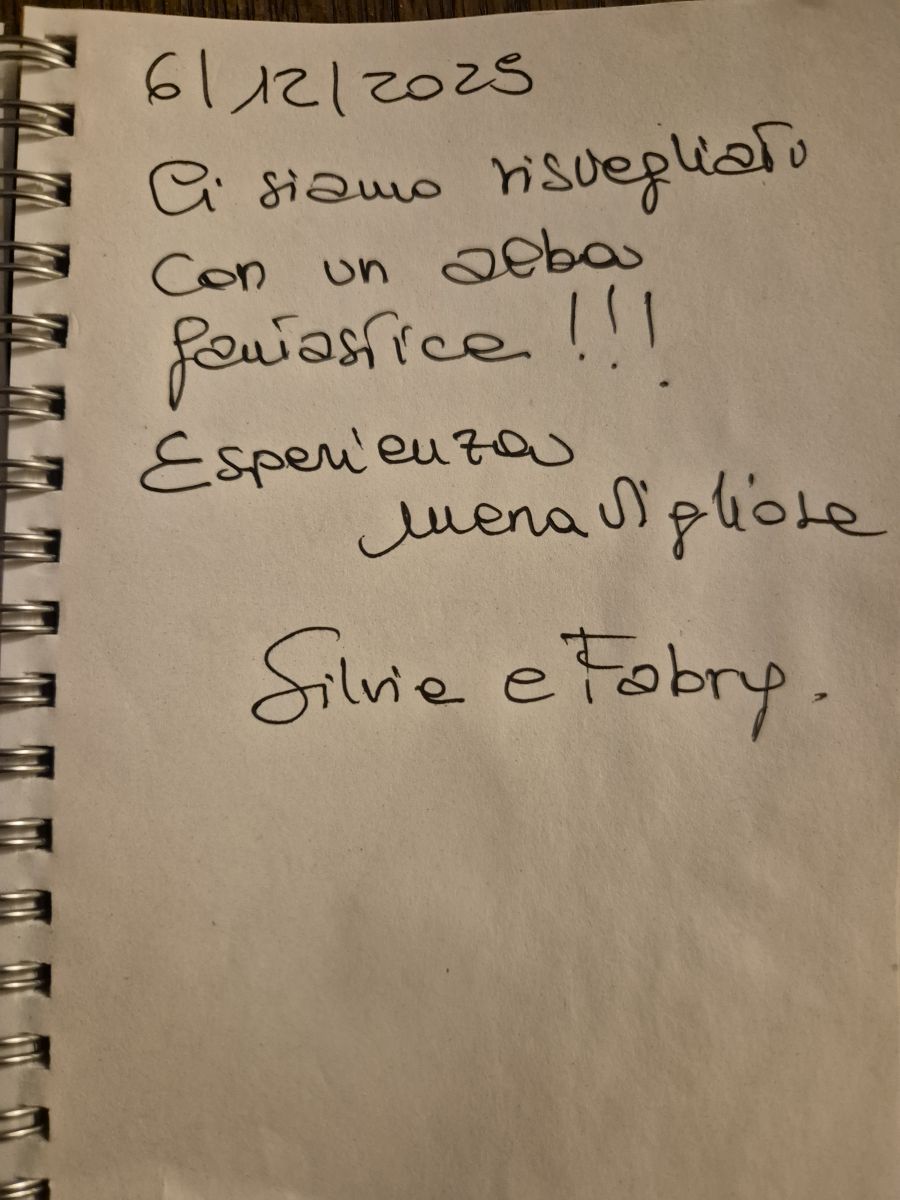 6/12/2025
Ci siamo risvegliati
con un alba
fantastica!!!
Esperienza
meravigliosa
Silvia e Fabry.